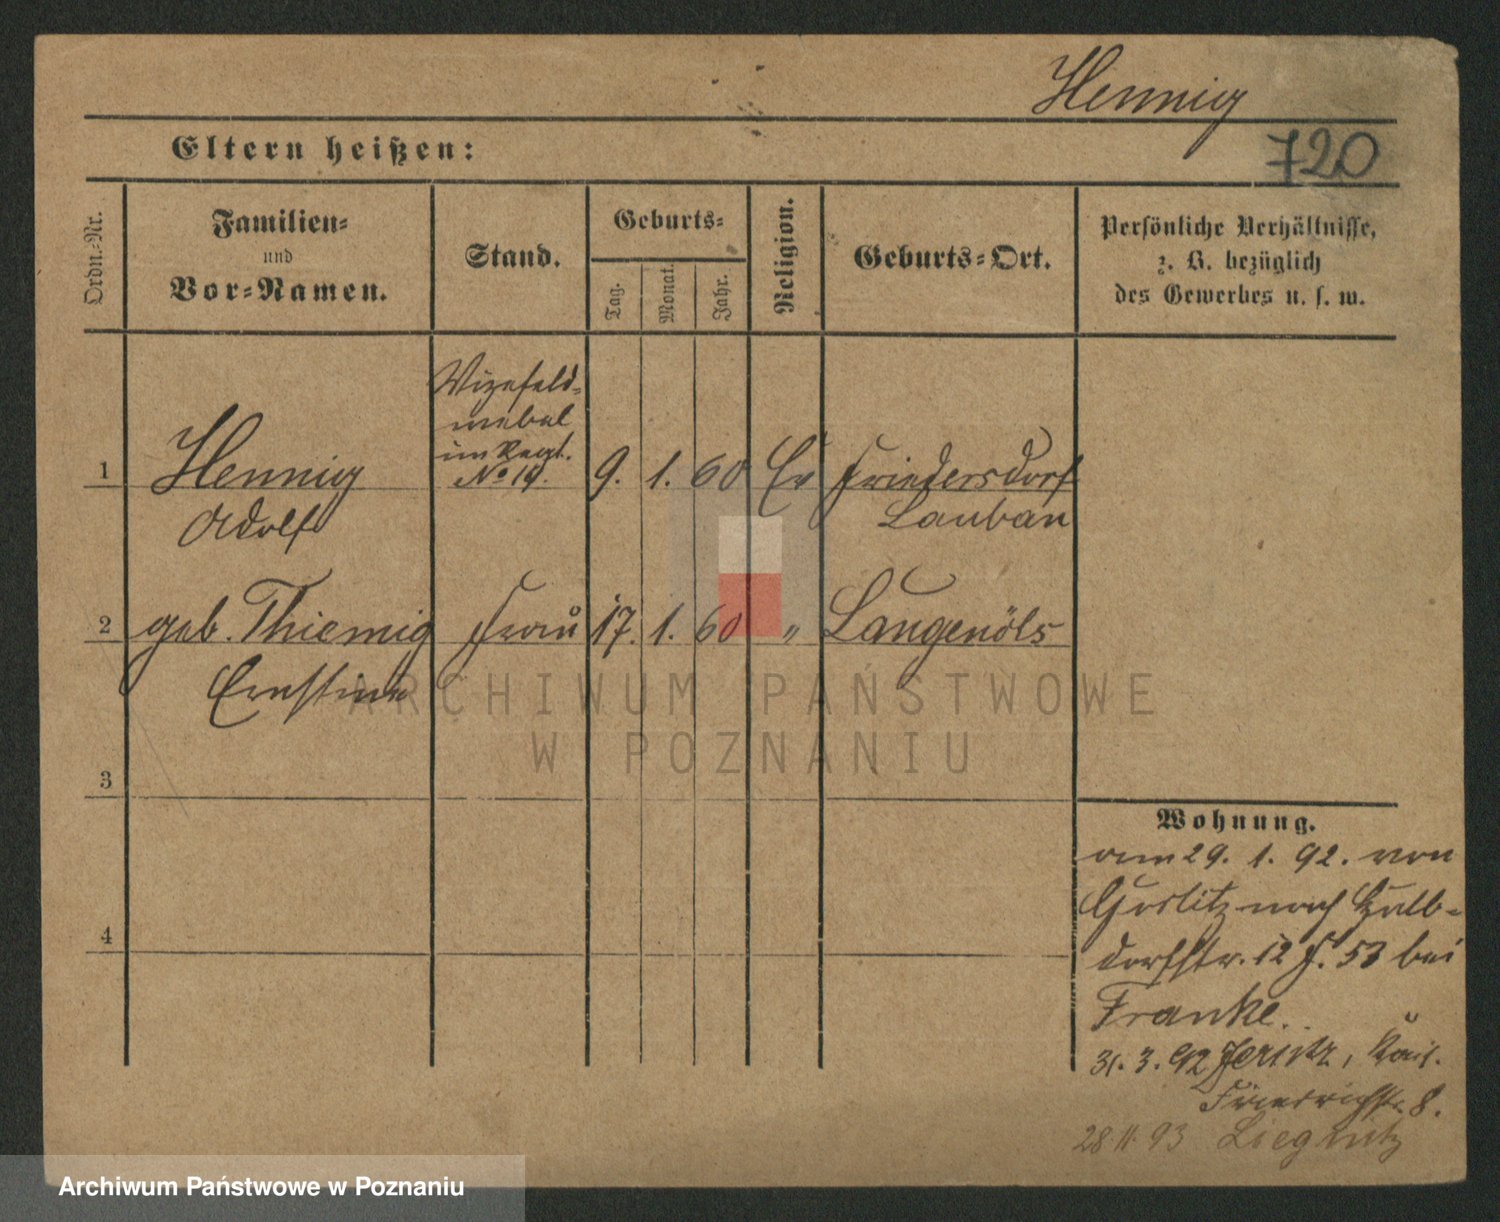 Hennig
720
Eltern heißen:
Ordn.-Nr.
Familien-
und
Vor-Namen.
Stand.
Geburts-
Tag.
Monat.
Jahr.
Religion.
Geburts-Ort.
Persönliche Verhältnisse,
z. B. bezüglich
des Gewerbes u. s. w.
1
Hennig
Adolf
Vizefeld-
webel
im Regt.
No 19.
9. 1. 60
Ev
Friedersdorf
Lauban
2
geb. Thiemig
Ernstine
Frau
17. 1. 60
"
Langenöls
3
4
Wohnung.
am 29. 1. 92. von
Görlitz nach
dorfstr. 12 53 bei
Franke.
31. 3. 92 Jersitz, Kais.
Friedrichstr. 8.
28 11 93 Liegnitz
ARCHIWUM PAŃSTWOWE
W POZNANIU
Archiwum Państwowe w Poznaniu